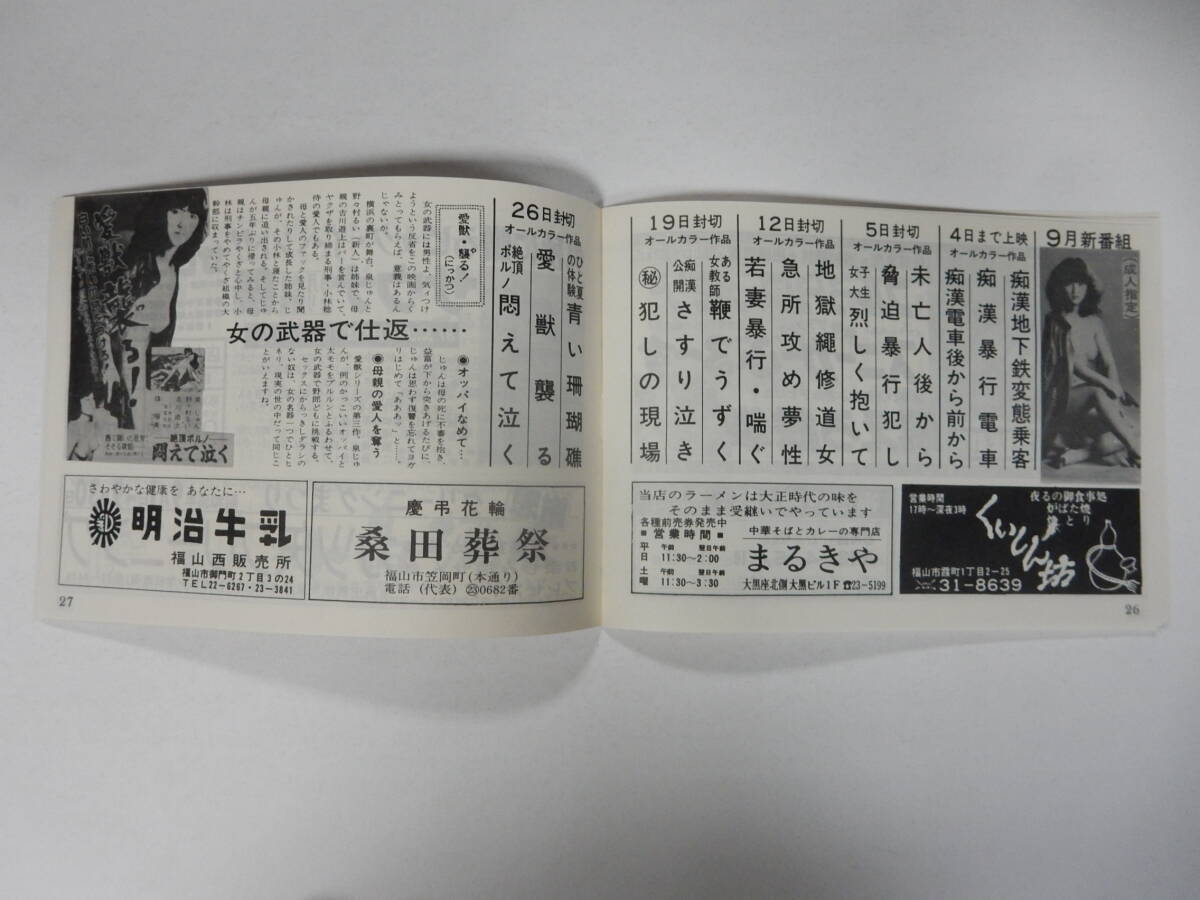 9月新番組
(成人指定)
4日まで上映
オールカラー作品
痴漢地下鉄変態乗客
痴漢暴行電車
痴漢電車後から前から
5日封切
オールカラー作品
未亡人後から
脅迫暴行犯し
女子大生
烈しく抱いて
12日封切
オールカラー作品
地獄縄修道女
急所攻め夢性
若妻暴行・喘ぐ
19日封切
オールカラー作品
ある女教師
鞭でうずく
痴漢公開
さすり泣き
㊙犯しの現場
当店のラーメンは大正時代の味を
そのまま受継いでやっています
各種前売券発売中
■営業時間■
平日 午前11:30〜翌日午前2:00
土曜 午前11:30〜翌日午前3:30
中華そばとカレーの専門店
まるきや
大黒座北側 大黒ビル1F ☎23-5199
営業時間
17時〜深夜3時
夜るの御食事処
炉ばた焼
くいしん坊
福山市霞町1丁目2-25
31-8639
26
26日封切
オールカラー作品
ひと夏の体験
青い珊瑚礁
愛獣襲る
絶頂ポルノ
悶えて泣く
愛獣・襲る!
(にっかつ)
女の武器には男性よ、気ィつけ
ようという反省をこの映画からく
みとってもらえば、意義はあるん
じゃないか。
横浜の裏町が舞台。泉じゅんと
野々村るい(新人)は姉妹で、母
親の吉川遊土はバーを営んでいて、
ヤクザを取り締まる刑事・小林稔
侍の愛人でもある。
母と愛人のファックを見たり聞
かされたりして成長した姉妹、じ
ゅんが、その小林と寝たことから
母親に追い出される。そしてじゅ
んが五年ぶりに帰ってみると、母
親はチンピラやくざと心中し、小
林は刑事をやめてやくざ組織の大
幹部に収まっていた。
女の武器で仕返……
●オッパイなめて…
じゅんは母の死に不審を抱き、
益富が下から突きあげるたびに、
じゅんは思わず復讐を忘れてヨガ
りはじめて「あああッ」と……。
●母親の愛人を奪う
愛獣シリーズの第三作。泉じゅ
んが、例のかっこいいオッパイと
太モモをプルルンとふるわせて、
女の武器で野郎どもに挑戦する。
セックスにからっきしグランの
ない奴は、女の名器一つでひとヒ
ネリ、現実の世の中だって同じこ
とがいえますね。
愛獣襲る!
絶頂ポルノ
悶えて泣く
さわやかな健康を あなたに…
明治牛乳
福山西販売所
福山市御門町2丁目3の24
TEL22-6267・23-3841
慶弔花輪
桑田葬祭
福山市笠岡町(本通り)
電話(代表)㉓0682番
27